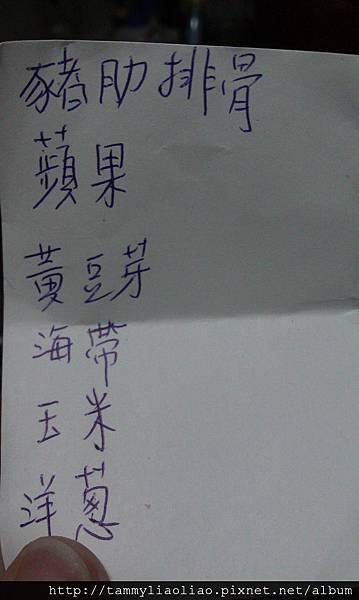 豬肋排骨
蘋果
黃豆芽
海帶
玉米
洋蔥
http://tammyliaoliao.pixnet.net/album